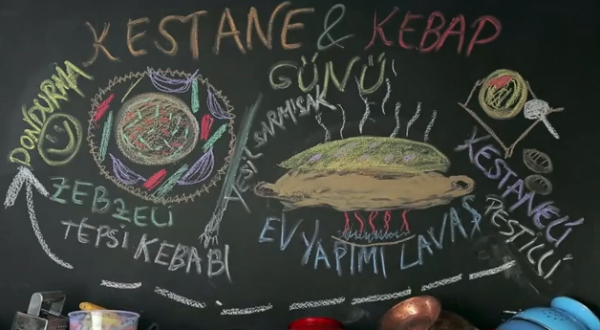 KESTANE & KEBAP
GÜNÜ
DONDURMA
YEŞİL SARMISAK
ZEBZELİ
TEPSİ KEBABI
EV YAPIMI LAVAŞ
KESTANELİ
PESTİLLİ